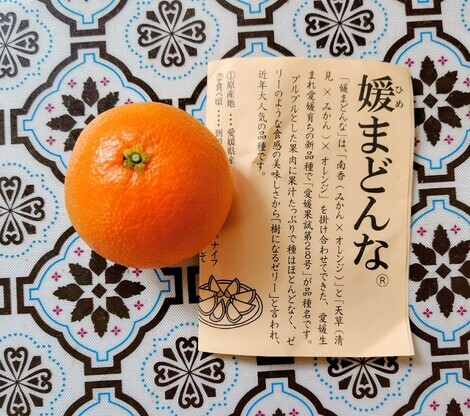 媛まどんな®
ひめ
「媛まどんな」は、「南香(みかん×オレンジ)」と「天草(清
見×みかん)×オレンジ」を掛け合わせてできた、愛媛生
まれ愛媛育ちの新品種で「愛媛果試第28号」が品種名です。
プルプルとした果肉に果汁たっぷりで種はほとんどなく、ゼ
リーのような食感の美味しさから「樹になるゼリー」と言われ、
近年大人気の品種です。
①原産地…愛媛県産
②食べ頃…
ナイフ